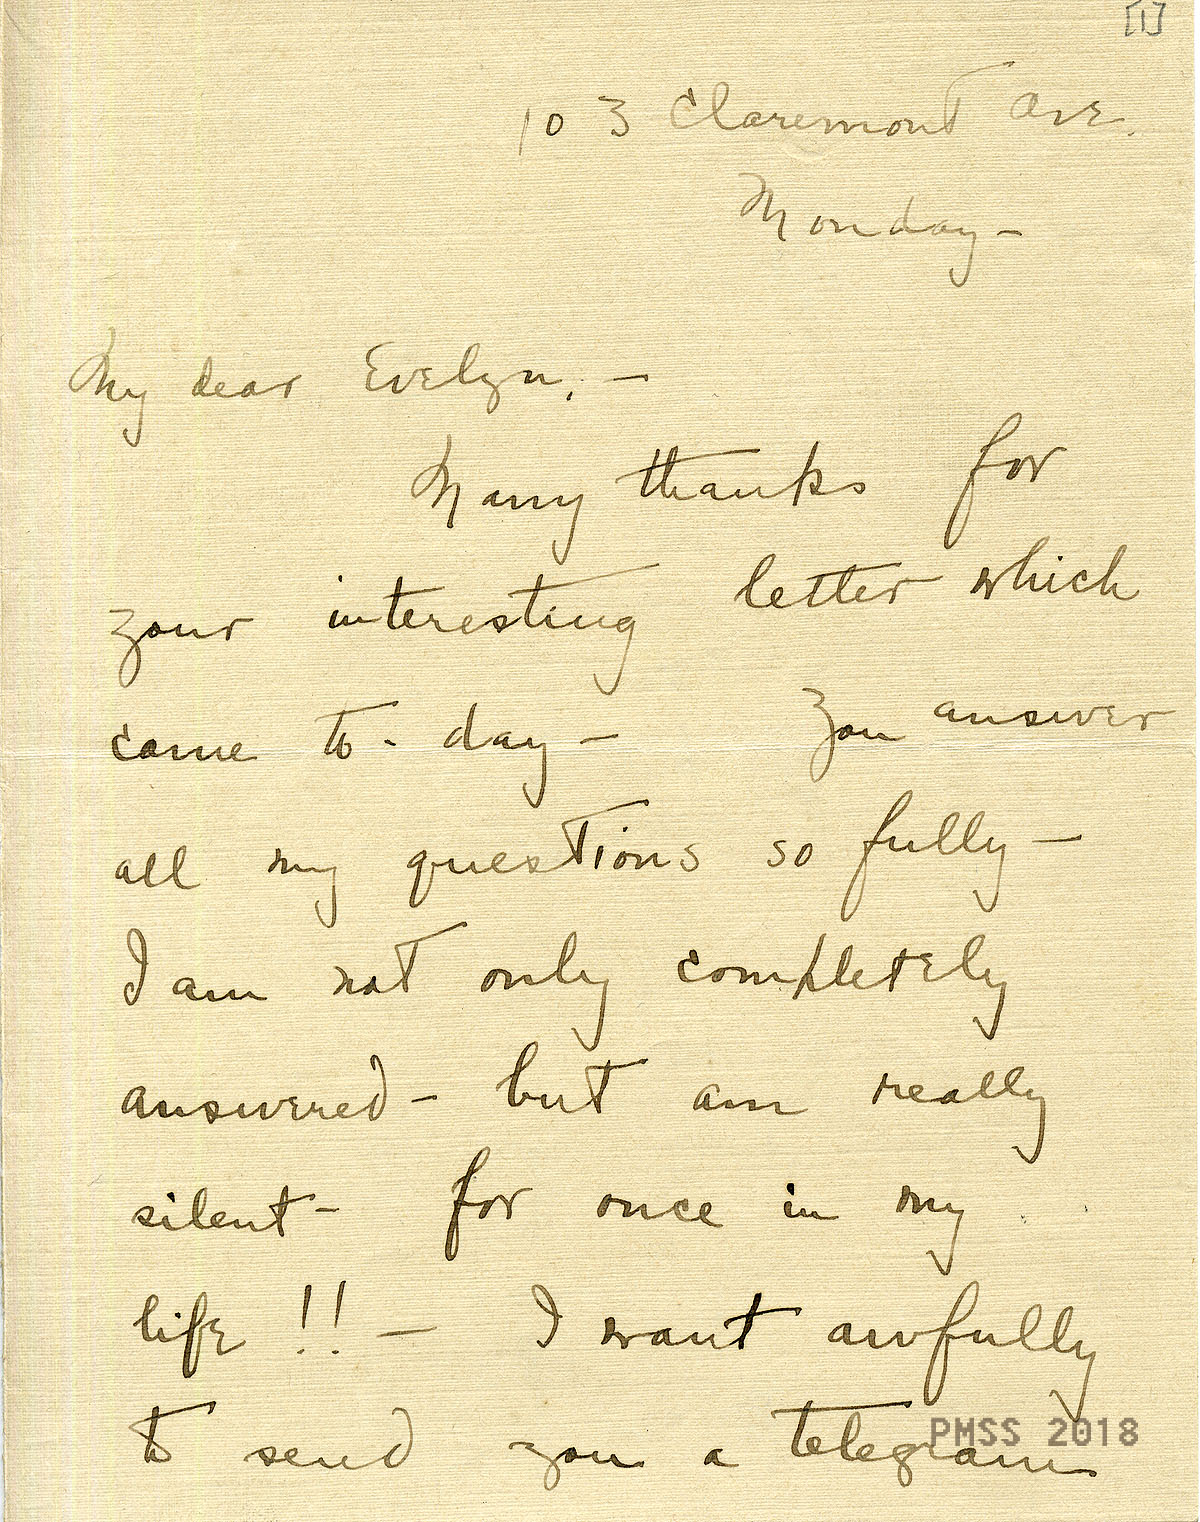 [1]
103 Claremont Ave.
Monday –
My dear Evelyn, –
Many thanks for
your interesting letter which
came to-day – You answer
all my questions so fully –
I am not only completely
answered – but am really
silent – for once in my
life!! – I want awfully
to send you a telegram
PMSS 2018